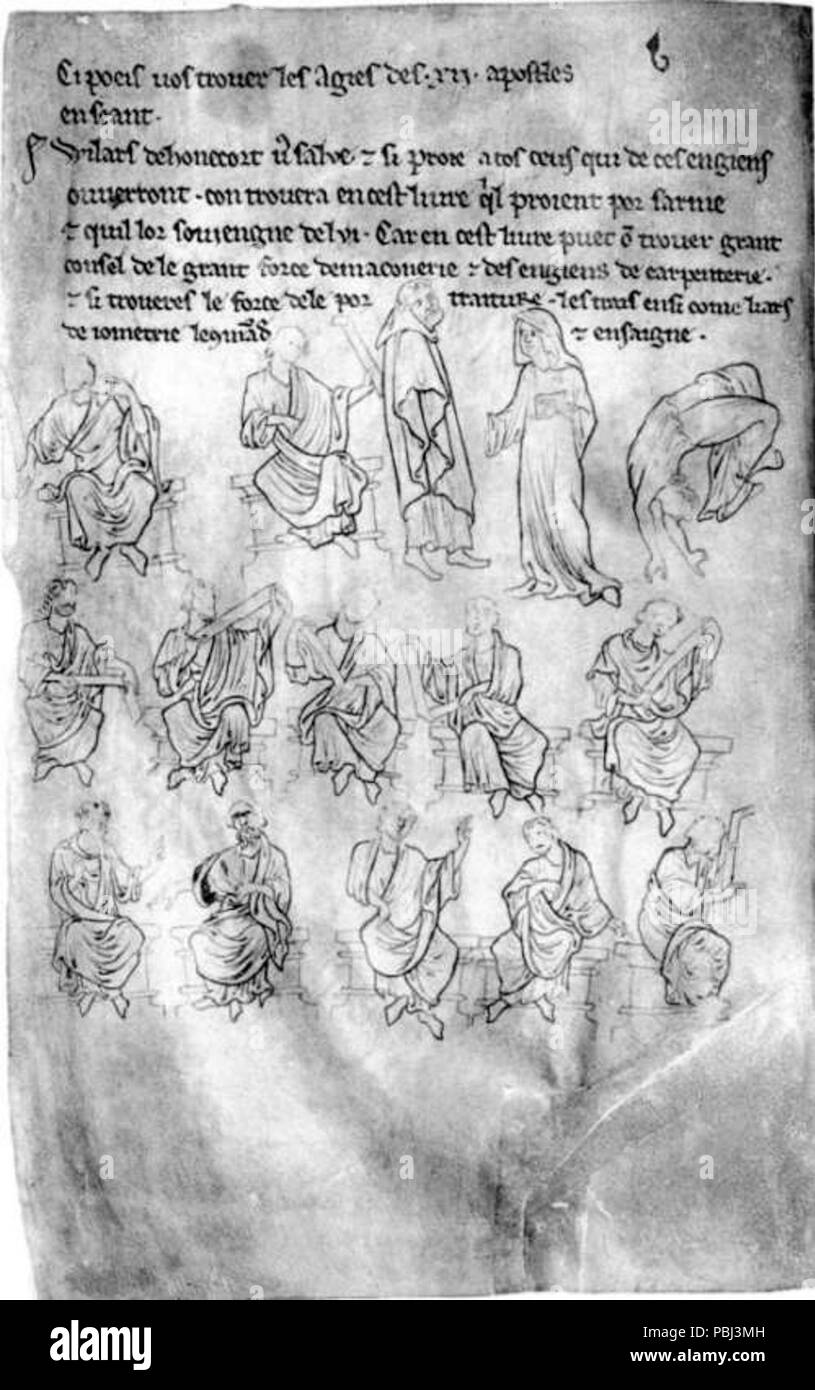 Ci poeis vos trouer les agies des .xij. apostles
en seant.
Vvilars dehonecort v9 salve ⁊ si proie atos ceus qui de ces engiens
ouverront. con trouera en cest livre q'l proient por sarme
⁊ quil lor soviengne delvi. Car en cest livre puet ō trouer grant
consel de le grant force demaconerie ⁊ des engiens de carpenterie.
⁊ si troueres le force dele por traiture. les trais ensi come li ars
de iometrie le ⁊ ensaigne.
alamy
Image ID: PBJ3MH
www.alamy.com